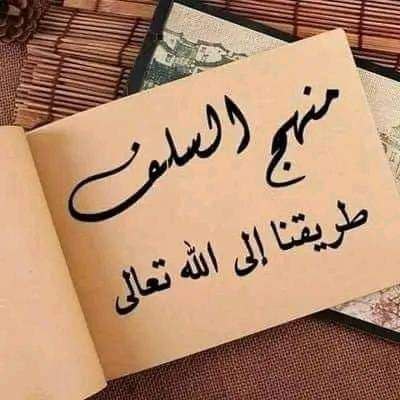 منهج السلف
طريقنا إلى الله تعالى